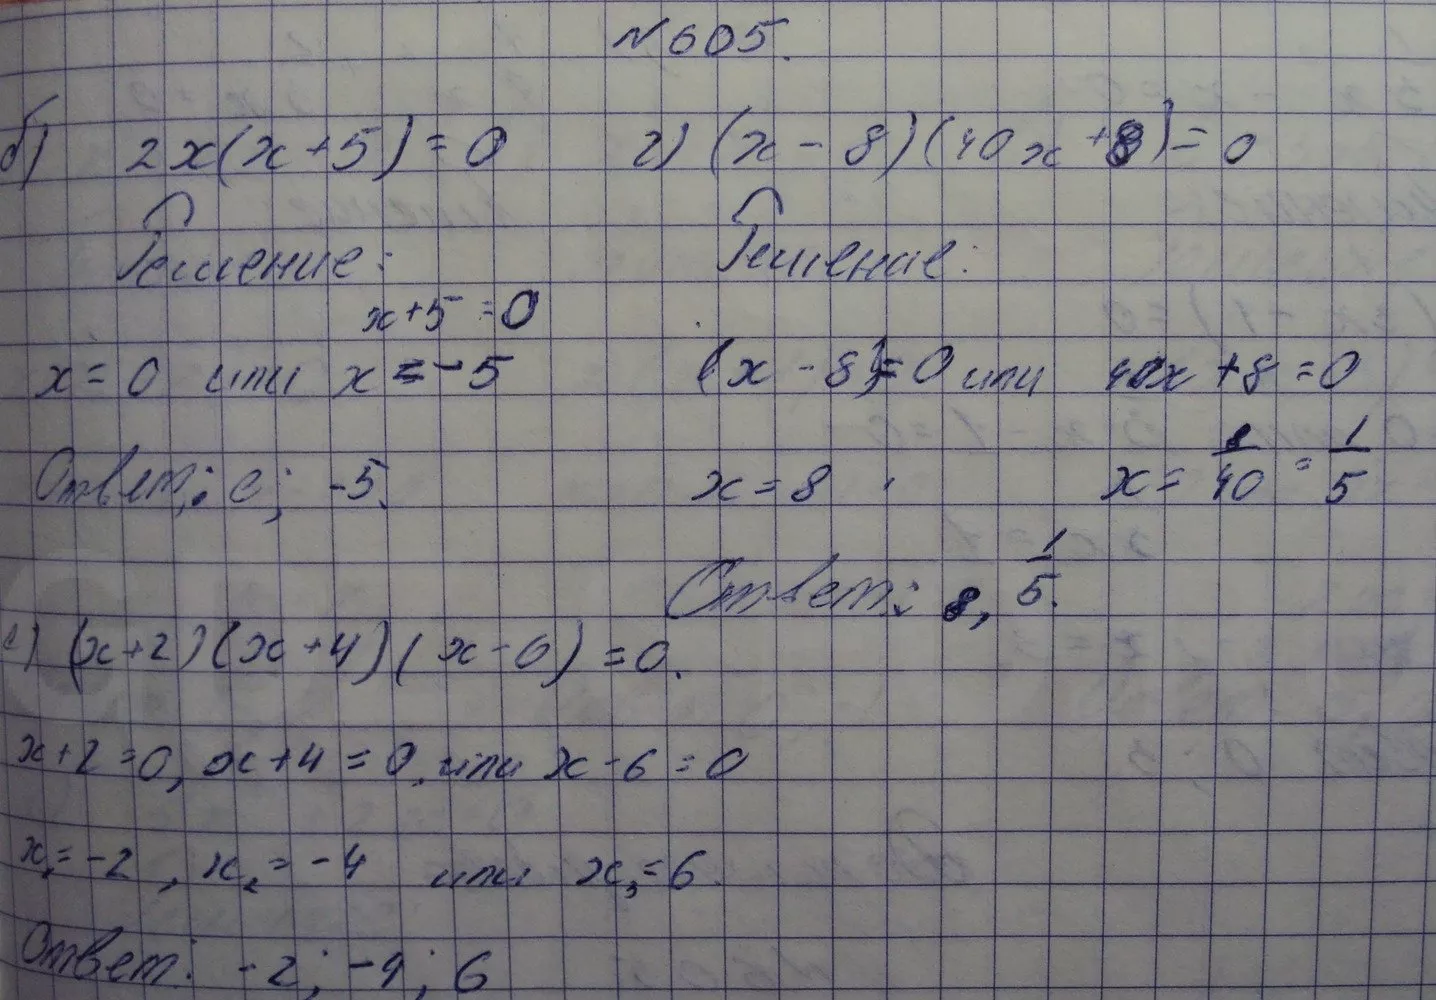 №605.
б) 2x(x+5)=0
Решение:
x+5=0
x=0 или x=-5
Ответ: 0; -5.
г) (x-8)(40x+8)=0
Решение:
(x-8)=0 или 40x+8=0
x=8, x=8/40=1/5
Ответ: 8, 1/5.
е) (x+2)(x+4)(x-6)=0.
x+2=0, x+4=0, или x-6=0
x₁=-2, x₂=-4 или x₃=6.
Ответ: -2; -4; 6